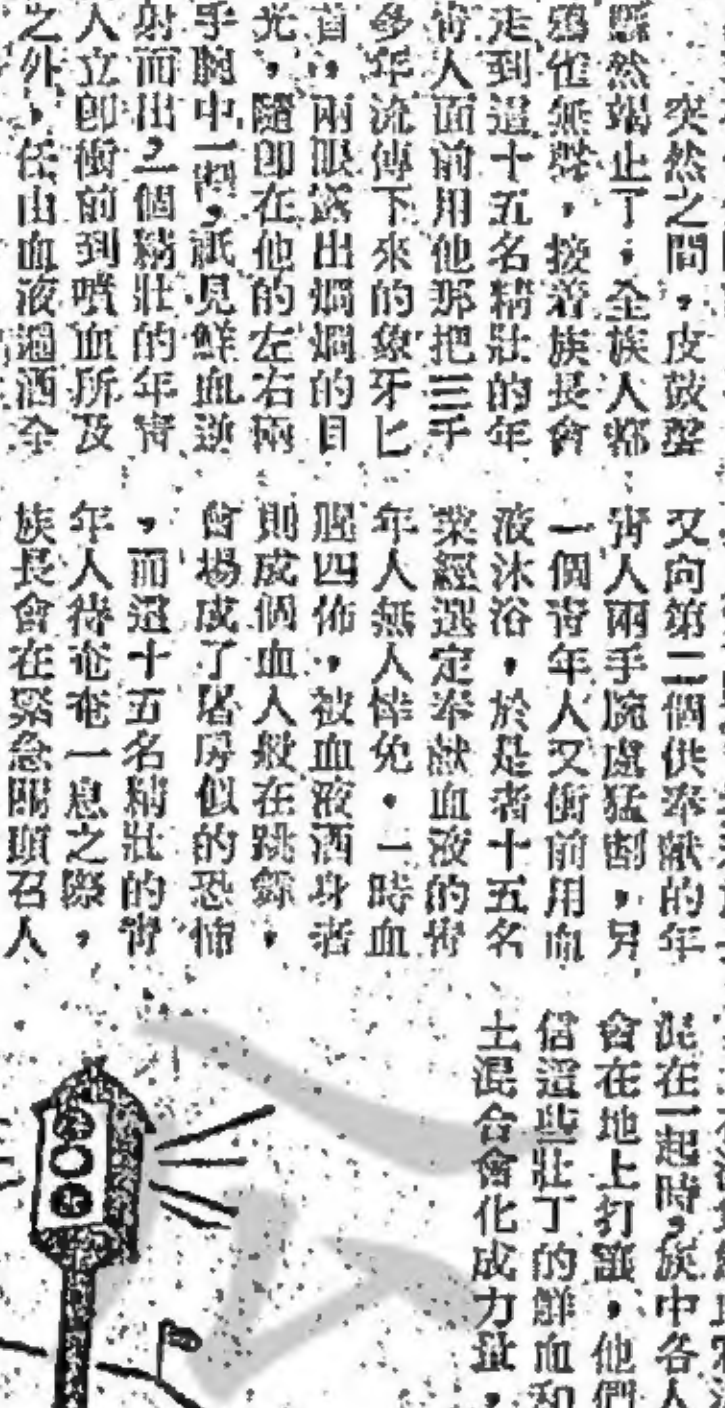 突然之間，皮鼓聲
驟然竭止了，全族人都
鴉雀無聲，接着族長會
走到這十五名精壯的年
青人面前用他那把三千
多年流傳下來的象牙匕
首，兩眼露出燗燗的目
光，隨即在他的左右兩
手腕中一割，祇見鮮血迸
射而出，一個精壯的年青
人立即衝前到噴血所及
之外，任由血液遍洒全
又向第二個供奉獻的年
青人兩手腕處猛割，另
一個青年人又衝前用血
液沐浴，於是者十五名
業經選定奉獻血液的青
年人無人倖免。一時血
腥四佈，被血液洒身者
則成個血人般在跳舞，
會場成了屠房似的恐怖
，而這十五名精壯的青
年人待奄奄一息之際，
族長會在緊急關頭召人
混在一起時，族中各人
會在地上打滾，他們
信這些壯丁的鮮血和
土混合會化成力量，